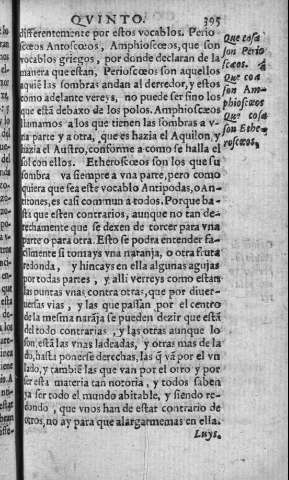 QVINTO. 395
differentemente por estos vocablos. Perio
scœos Antoscœos, Amphioscœos, que son
vocablos griegos, por donde declaran de la
manera que estan, Perioscœos son aquellos
aquiẽ las sombras andan al derredor, y estos
como adelante vereys, no puede ser sino los
que està debaxo de los polos. Amphioscœos
llamamos a los que tienen las sombras a v-
na parte y a otra, que es hazia el Aquilon, y
hazia el Austro, conforme a como se halla el
sol con ellos. Etheroscœos son los que su
sombra va siempre a vna parte, pero como
quiera que sea este vocablo Antipodas, o An-
tones, es casi commun a todos. Porque bas-
ta que esten contrarios, aunque no tan de-
rechamente que se dexen de torcer para vna
parte o para otra. Esto se podra entender fa-
cilmente si tomays vna naranja, o otra fruta
redonda, y hincays en ella algunas agujas
por todas partes, y alli verreys como estan
las puntas vnas contra otras, que por diuer-
sersas vias, y las que passan por el centro
de la mesma narãja se pueden dezir que està
del todo contrarias, y las otras aunque lo
son, està las vnas ladeadas, y otras mas de la
do, hasta ponerse derechas, las q̃ và por el vn
lado, y tambiẽ las que van por el otro y por
ser esta materia tan notoria, y todos saben
ya ser todo el mundo abitable, y siendo re-
dondo, que vnos han de estar contrario de
otros, no ay para que alargarmemas en ella.
Luys.
Que cosa
son Perio
scœos.
Que coa
son Am-
phioscœos
Que cosa
son Ethe-
roscœos.